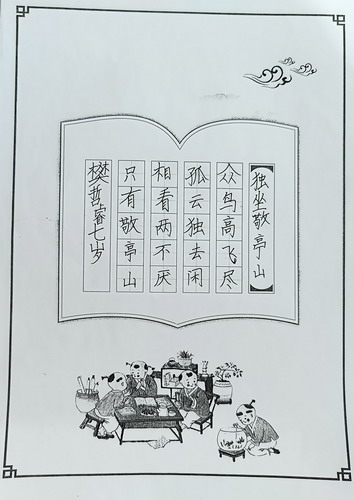 独坐敬亭山
众鸟高飞尽
孤云独去闲
相看两不厌
只有敬亭山
樊哲睿七岁